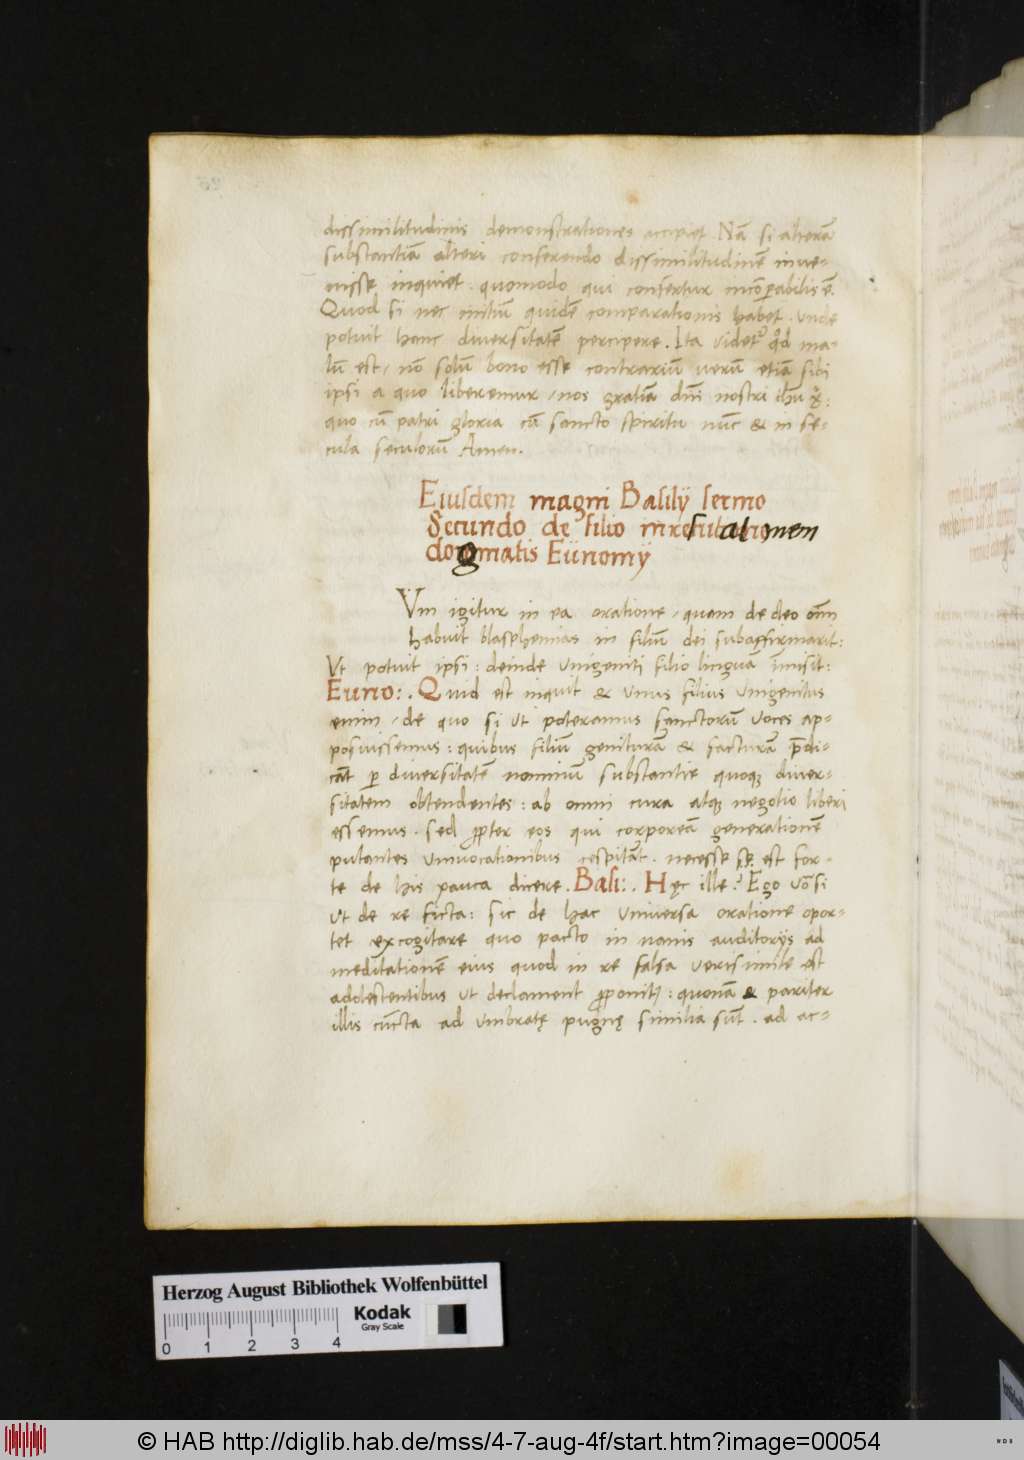 dissimilitudinis demonstrationes accipiet. Nā si alterā
substantiā alteri conferendo dissimilitudinē inve-
nisse inquiet. quomodo qui confertur incōparabilis ē.
Quod si nec initiū quidē comparationis habet. unde
potuit hanc diversitatē percipere. Ita videtᷣ qd ma-
lū est, nō solū bono esse contrariū verū etiā sibi
ipsi a quo liberemur, nos gratia dn̄i nostri ihu
quo cū patri gloria cū sancto spiritu nūc & in se-
cula seculorū Amen.
Eiusdem magni Basilÿ sermo
Secundo de filio in
dogmatis Eünomÿ
Vm igitur in ea oratione, quam de deo om̄
habuit blasphemias in filiū dei subaffirmarit:
Ut potuit ipsi: deinde unigeniti filio linguā īmisit:
Euno:. Quid est inquit & unus filius unigenitus
enim, de quo si ut poteramus sanctorū voces ap-
posuissemus: quibus filiū geniturā & facturā p̄di-
cāt ꝑ diversitatē nominū substantie quoqꝫ diver-
sitatem obtendentes: ab omni cura atqꝫ negotio liberi
essemus. sed ꝓpter eos qui corporeā generationē
putantes univocationibus cespitāt. necesse est for-
te de his pauca dicere. Basi:. Hęc ille? Ego vō si
ut de re ficta: sic de hac universa oratione opor-
tet excogitare quo pacto in nanis auditorijs ad
meditationē eius quod in re falsa verisimile est
adolestentibus ut declament ꝓponitᷣ: quonā & pariter
illis cūcta ad umbratę pugnę similia sūt. ad ac-
Herzog August Bibliothek Wolfenbüttel
Kodak
Gray Scale
0 1 2 3 4
© HAB http://diglib.hab.de/mss/4-7-aug-4f/start.htm?image=00054